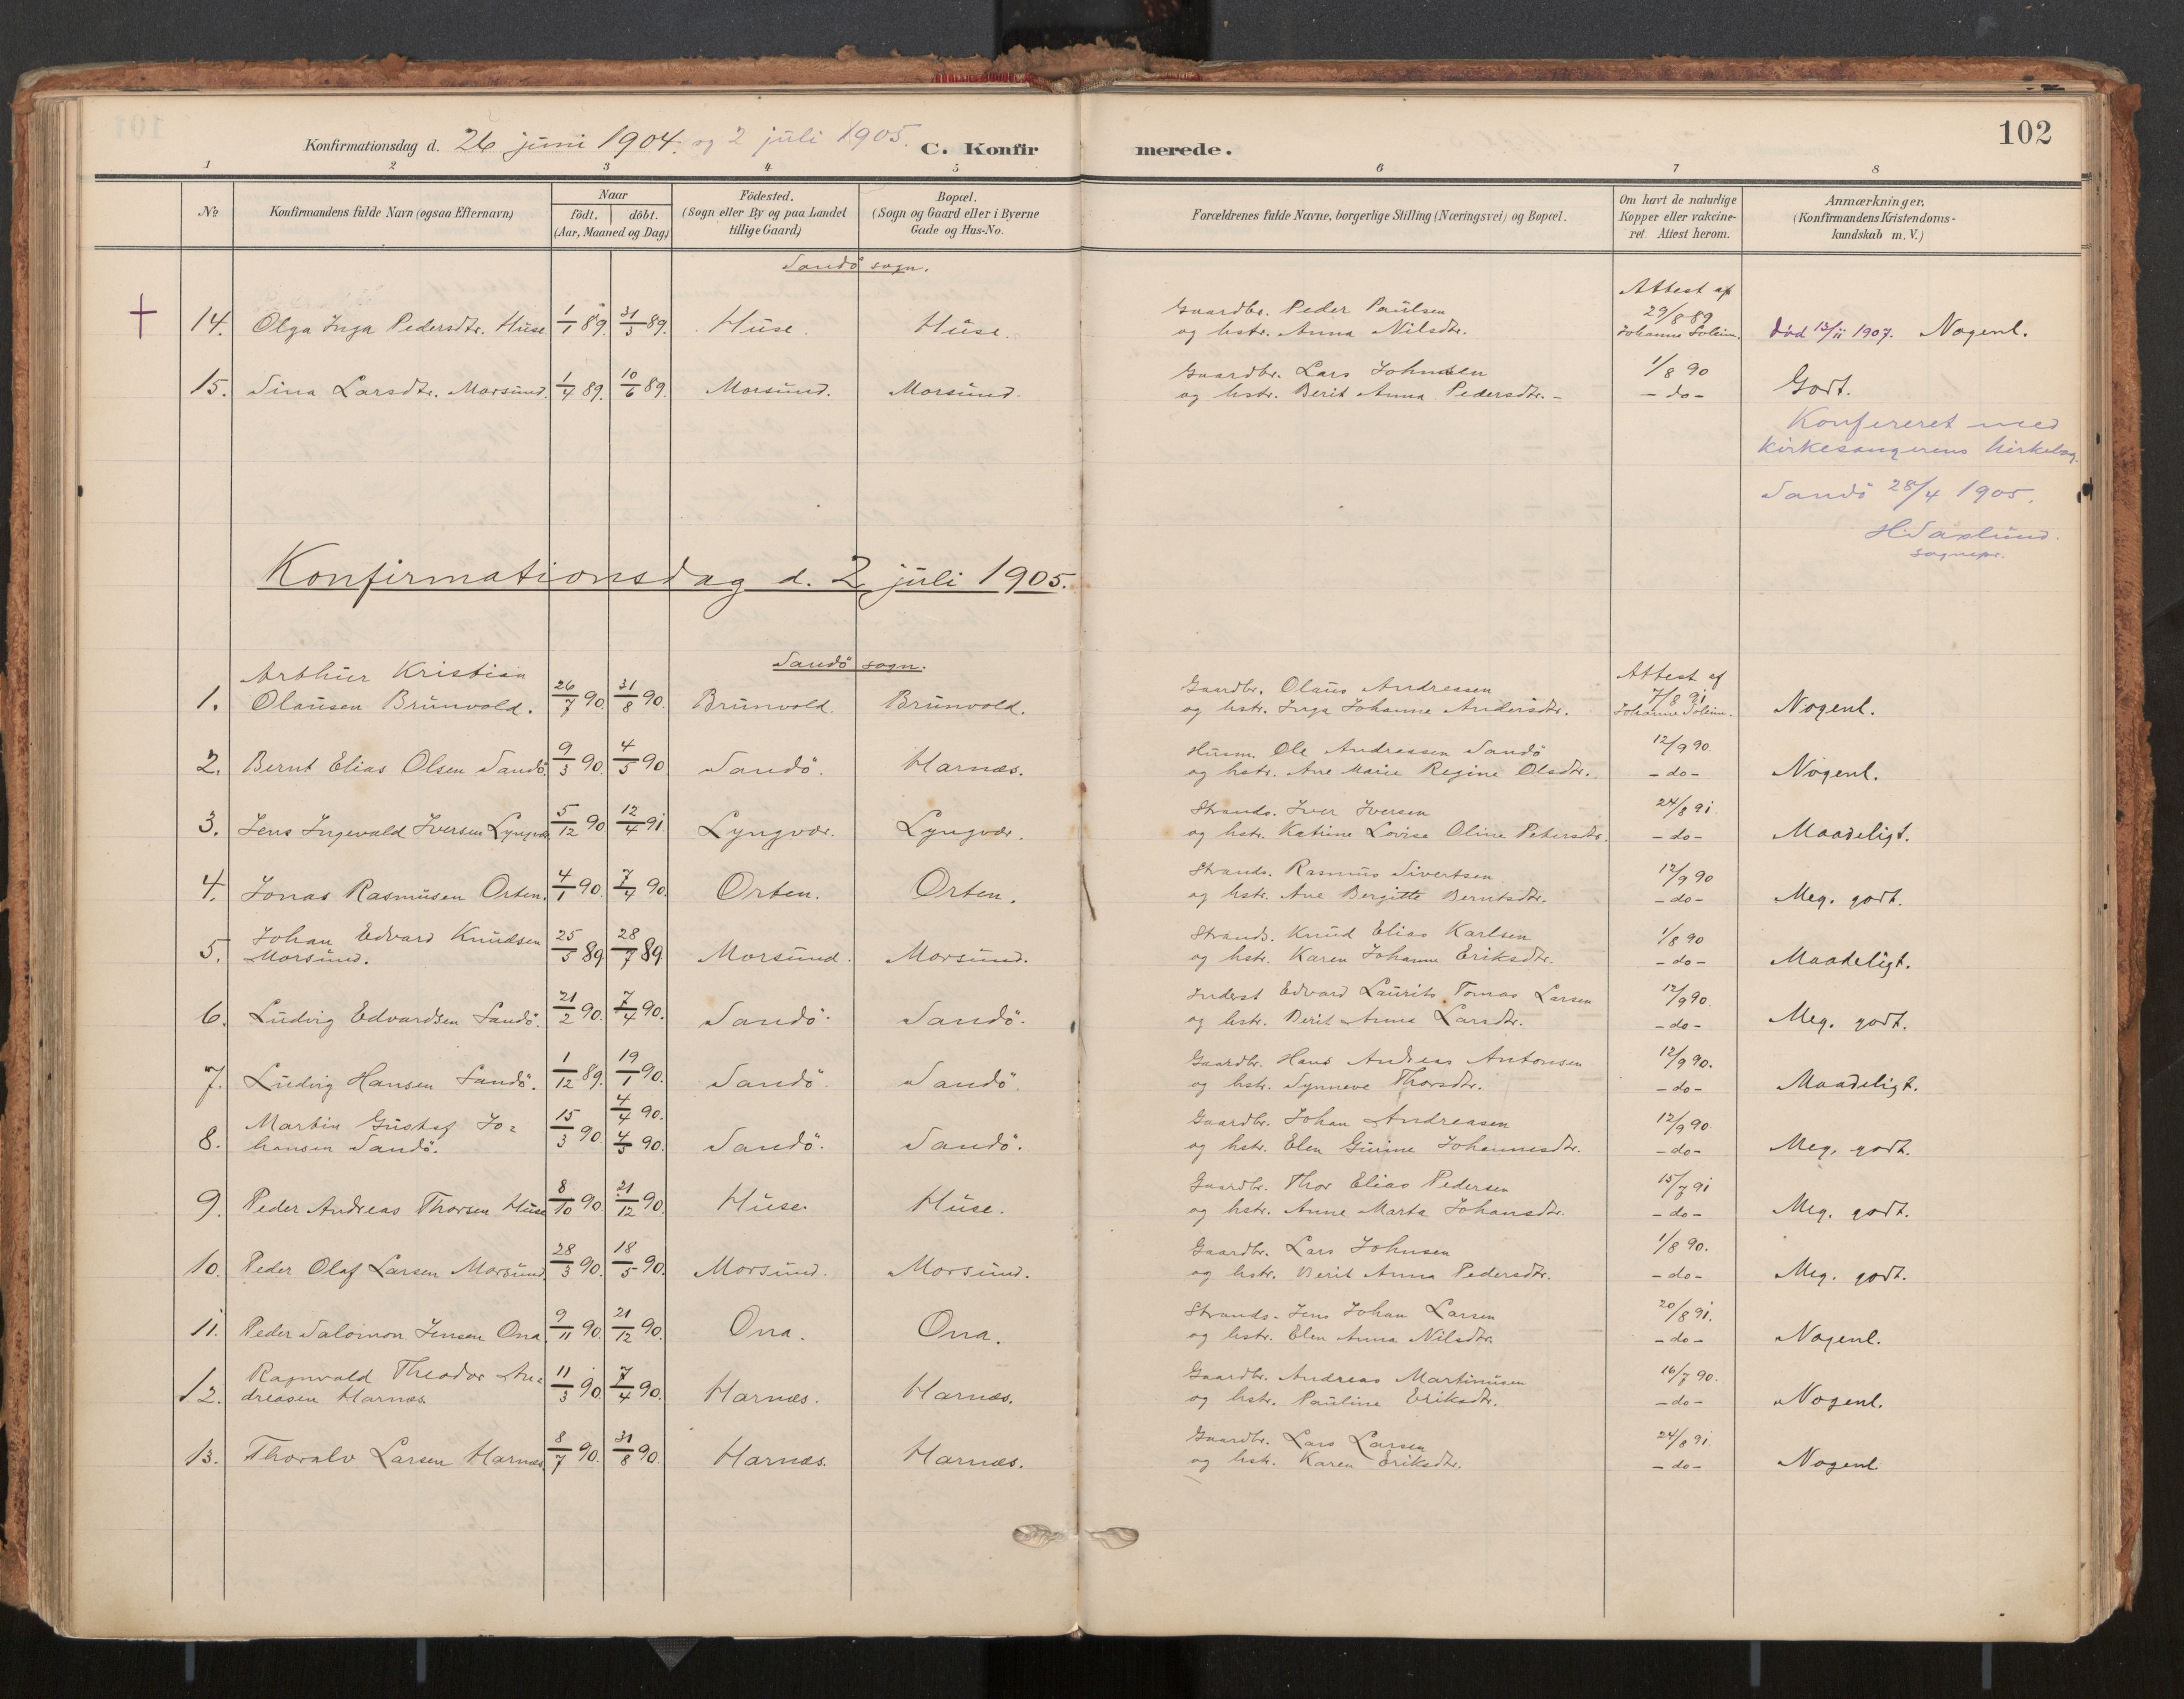 102
Konfirmationsdag d. 26 juni 1904. og 2 juli 1905. C. Konfirmerede.
1 2 3 4 5 6 7 8
No
Konfirmandens fulde Navn (ogsaa Efternavn)
Naar
födt. | döbt.
(Aar, Maaned og Dag)
Födested.
(Sogn eller By og paa Landet
tillige Gaard)
Bopæl.
(Sogn og Gaard eller i Byerne
Gade og Hus-No.
Forældrenes fulde Navne, borgerlige Stilling (Næringsvei) og Bopæl.
Om havt de naturlige
Kopper eller vakcine-
ret. Attest herom.
Anmærkninger.
(Konfirmandens Kristendoms-
kundskab m.V.)
Sandö sogn.
14. Olga Inga Pedersdtr. Huse 1/1 89. 31/3 89. Huse. Huse. Gaardbr. Peder Paulsen
og hstr. Anna Nilsdtr. Attest af
29/8 89
Johanne Soleim. död 13/11 1907. Nogenl.
15. Sina Larsdtr. Morsund. 1/4 89. 10/6 89. Morsund. Morsund. Gaardbr. Lars Johnsen
og hstr. Berit Anna Pedersdtr. - 1/8 90
- do - Godt.
Konfereret med
kirkesangerens kirkebog.
Sandö 28/4 1905.
H. Saxlund.
sognepr.
Konfirmationsdag d. 2 juli 1905.
Sandö sogn.
1. Arthur Kristian
Olausen Brunvold. 26/7 90. 31/8 90. Brunvold. Brunvold. Gaardbr. Olaus Andreasen
og hstr. Inga Johanne Andersdtr. Attest af
7/8 91
Johanne Soleim. Nogenl.
2. Bernt Elias Olsen Sandö. 9/3 90. 4/5 90 Sandö. Harnæs. Husm. Ole Andreasen Sandö
og hstr. Ane Marie Regine Olsdtr. 12/9 90.
- do - Nogenl.
3. Jens Ingevald Iversen Lyngvær 5/12 90 12/4 91. Lyngvær. Lyngvær. Strands. Iver Iversen
og hstr. Katrine Lovise Oline Petersdtr. 24/8 91
- do - Maadeligt.
4. Jonas Rasmusen Orten. 4/1 90. 7/4 90. Orten. Orten. Strands. Rasmus Sivertsen
og hstr. Ane Bergitte Berntsdtr. 12/9 90
- do - Meg. godt.
5. Johan Edvard Knudsen
Morsund. 25/5 89 28/7 89 Morsund. Morsund. Strands. Knud Elias Karlsen
og hstr. Karen Johanne Eriksdtr. 1/8 90
- do - Maadeligt.
6. Ludvig Edvardsen Sandö. 21/2 90. 7/4 90. Sandö. Sandö. Inderst Edvard Laurits Tomas Larsen
og hstr. Berit Anna Larsdtr. 12/9 90.
- do - Meg. godt.
7. Ludvig Hansen Sandö. 1/12 89. 19/1 90. Sandö. Sandö. Gaardbr. Hans Andreas Antonsen
og hstr. Synneve Thorsdtr. 12/9 90.
- do - Maadeligt.
8. Martin Gustaf Jo=
hansen Sandö. 15/3 90. 4/4 90.
4/5 90. Sandö. Sandö. Gaardbr. Johan Andreasen
og hstr. Elen Gurine Johannesdtr. 12/9 90
- do - Meg. godt.
9. Peder Andreas Thorsen Huse 8/10 90. 21/12 90. Huse. Huse. Gaardbr. Thor Elias Pedersen
og hstr. Anne Marta Johansdtr. 15/7 91
- do - Meg. godt.
10. Peder Olaf Larsen Morsund. 28/3 90. 18/5 90. Morsund. Morsund. Gaardbr. Lars Johnsen
og hstr. Berit Anna Pedersdtr. 1/8 90.
- do - Meg. godt.
11. Peder Salomon Jensen Ona. 9/11 90. 21/12 90. Ona. Ona. Strands. Jens Johan Larsen
og hstr. Elen Anna Nilsdtr. 20/8 91.
- do - Nogenl.
12. Ragnvald Theodor An=
dreasen Harnæs. 11/3 90. 7/4 90. Harnæs. Harnæs. Gaardbr. Andreas Martinusen
og hstr. Pauline Eriksdtr. 16/7 90.
- do - Nogenl.
13. Thoralv Larsen Harnæs. 8/7 90. 31/8 90. Harnæs. Harnæs. Gaardbr. Lars Larsen
og hstr. Karen Eriksdtr. 24/8 91.
- do - Nogenl